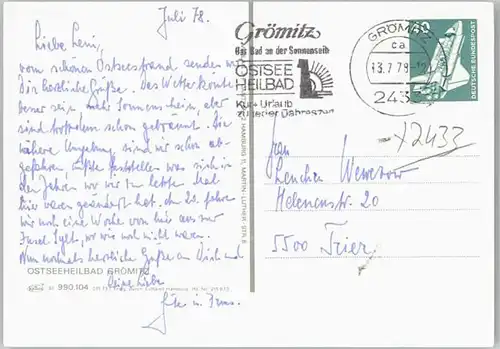 Juli 78.
Liebe Leni,
vom schönen Ostseestrand senden wir
Dir herzliche Grüße. Das Wetter könnte
besser sein mehr Sonnenschein, aber
sind trotzdem schon gebräunt. Die
nähere Umgebung sind wir schon ab-
gefahren, mußte feststellen was sich in
den Jahren wo wir zum letzten Mal
hier waren geändert hat, den 20. fahren
wir noch eine Woche von hier aus zur
Insel Sylt, wo wir noch nicht waren.
Nun nochmals herzliche Grüße an Dich und
Deine Liebe
OSTSEEHEILBAD GRÖMITZ
990.104
Grömitz
Das Bad an der Sonnenseite
OSTSEE
HEILBAD
Kur + Urlaub
zu jeder Jahreszeit
GRÖMITZ
ca
13.7.78-12
2433
DEUTSCHE BUNDESPOST
HAMBURG 11, MARTIN-LUTHER-STR. 8
2433
Frau
Lenchen
Helenenstr. 20
5500 Trier